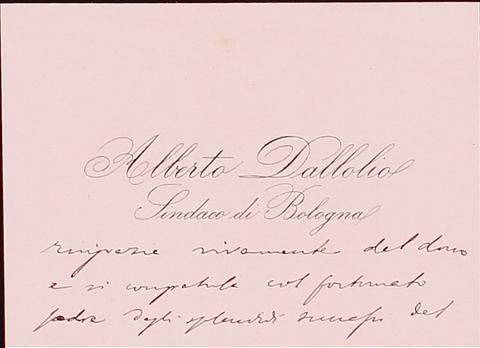 Alberto Dallolio
Sindaco di Bologna
ringrazia vivamente del dono
e si congratula col fortunato
padre degli splendidi successi del